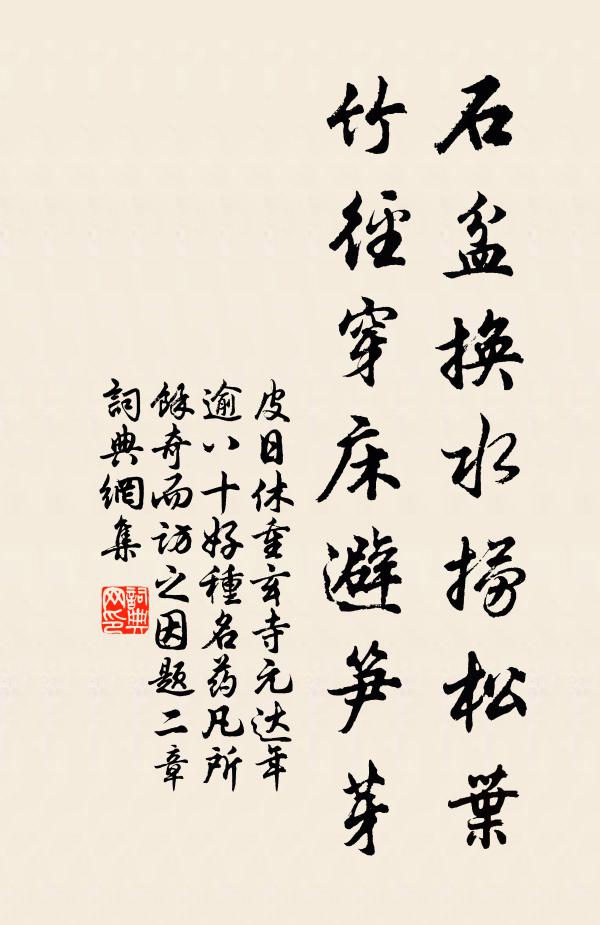 石盆換水撈松葉
竹徑穿床避笋芽
皮日休重玄寺元达年
逾八十好種名药凡所
餘奇而访之因题二章
詞典網集
詞典网印